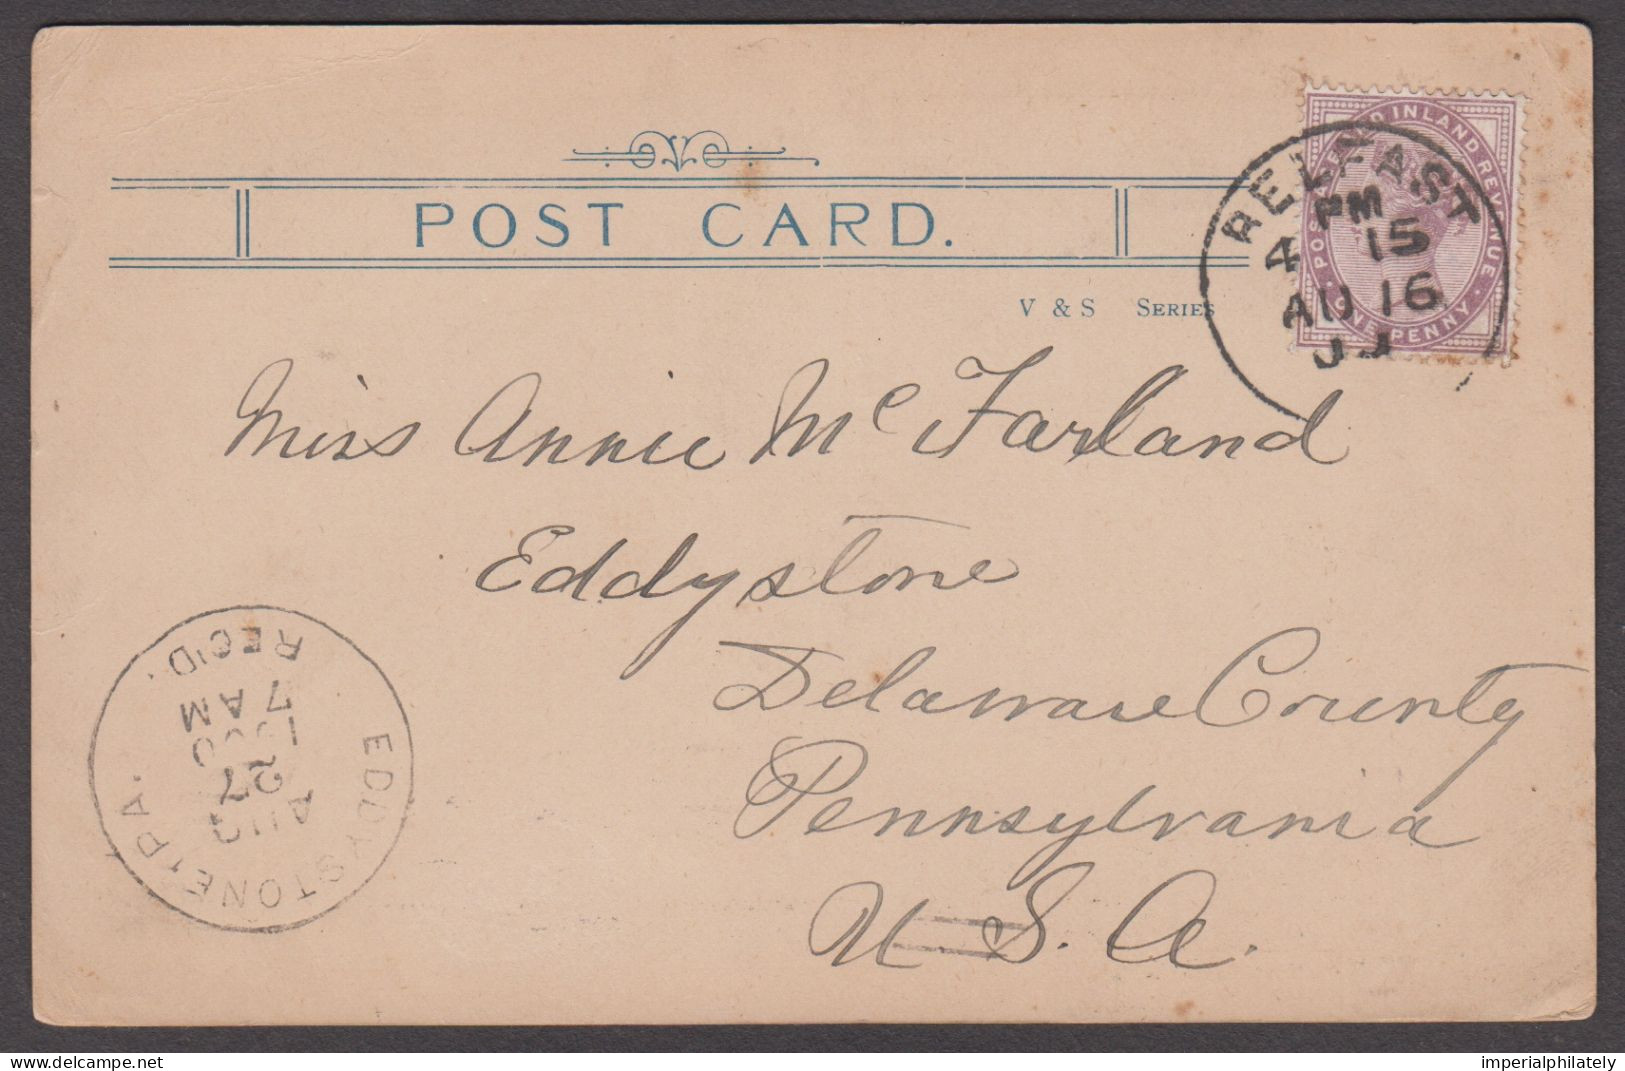 POST CARD.
V & S SERIES
POSTAGE AND INLAND REVENUE
ONE PENNY
BELFAST
PM
4 15
AU 16
Miss Annie McFarland
Eddystone
Delaware County
Pennsylvania
U.S.A.
EDDYSTONE, PA.
AUG
27
1900
7 AM
REC'D.
delcampe.net
imperialphilately